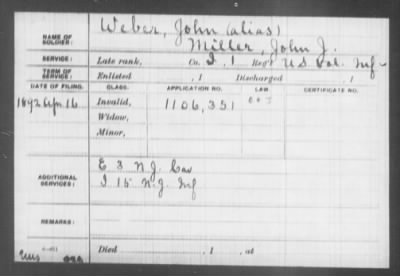 NAME OF SOLDIER: Weber, John (alias)
Miller, John J.
SERVICE: Late rank, Co. I, 1 Reg't U.S. Vol. Inf
TERM OF SERVICE: Enlisted , 1 Discharged , 1
DATE OF FILING. CLASS. APPLICATION NO. LAW CERTIFICATE NO.
1892 Apr 16 Invalid, 1106,351
Widow,
Minor,
ADDITIONAL SERVICES: E 3 N.J. Cav
I 15 N.J. Inf
REMARKS:
Died , 1 , at